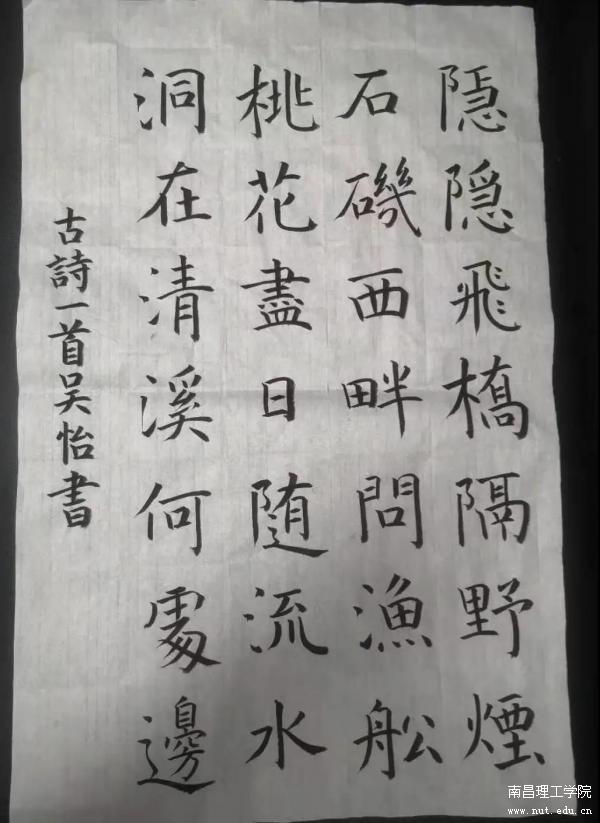 隱隱飛橋隔野煙
石磯西畔問漁船
桃花盡日隨流水
洞在清溪何處邊
古詩一首吴怡書
南昌理工学院
www.nut.edu.cn